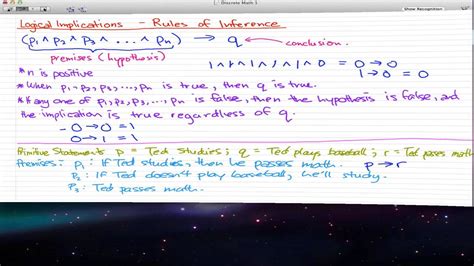 Discrete Math 1
Show Recognition
Logical Implications - Rules of Inference
(p₁ ∧ p₂ ∧ p₃ ∧ ... ∧ pₙ) → q
conclusion.
premises (hypothesis)
1 ∧ 1 ∧ 1 ∧ 1 ∧ 1 ∧ 0 = 0 → 0
1 → 0 = 0
*n is positive
*When p₁, p₂, p₃, ..., pₙ is true, then q is true.
*If any one of p₁, p₂, p₃, ..., pₙ is false, then the hypothesis is false, and
the implication is true regardless of q.
- 0 → 0 = 1
0 → 1 = 1
Primitive Statements p = Ted studies; q = Ted plays baseball; r = Ted passes math
Premises: p₁: If Ted studies, then he passes math. p → r
p₂: If Ted doesn't play baseball, he'll study.
p₃: Ted passes math.